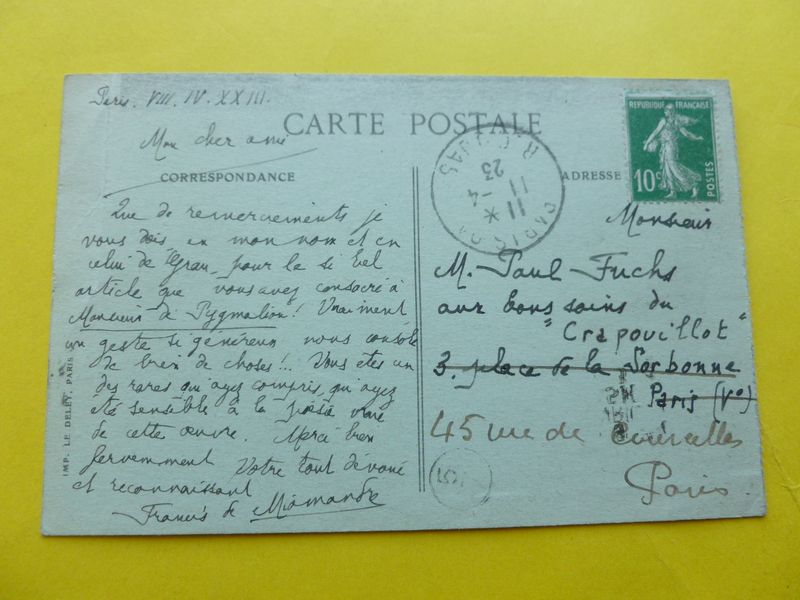 Paris. VIII. IV. XXIII.
CARTE POSTALE
Mon cher ami
CORRESPONDANCE
ADRESSE
REPUBLIQUE FRANÇAISE
10c
POSTES
PARIS
11
11 -4
23
Que de remerciements je
vous dois, en mon nom et en
celui de Gran, pour le si bel
article que vous avez consacré à
Monsieur de Pygmalion! Vraiment
un geste si généreux nous console
de bien de choses!... Vous êtes un
des rares qui ayez compris, qui ayez
été sensible à la poésie vraie
de cette œuvre. Merci bien
fervemment Votre tout dévoué
et reconnaissant
Francis de Miomandre
Monsieur
M. Paul Fuchs
aux bons soins du
"Crapouillot"
3. place de la Sorbonne
Paris (Ve)
45 rue de Courcelles
Paris
IMP. LE DELEY, PARIS